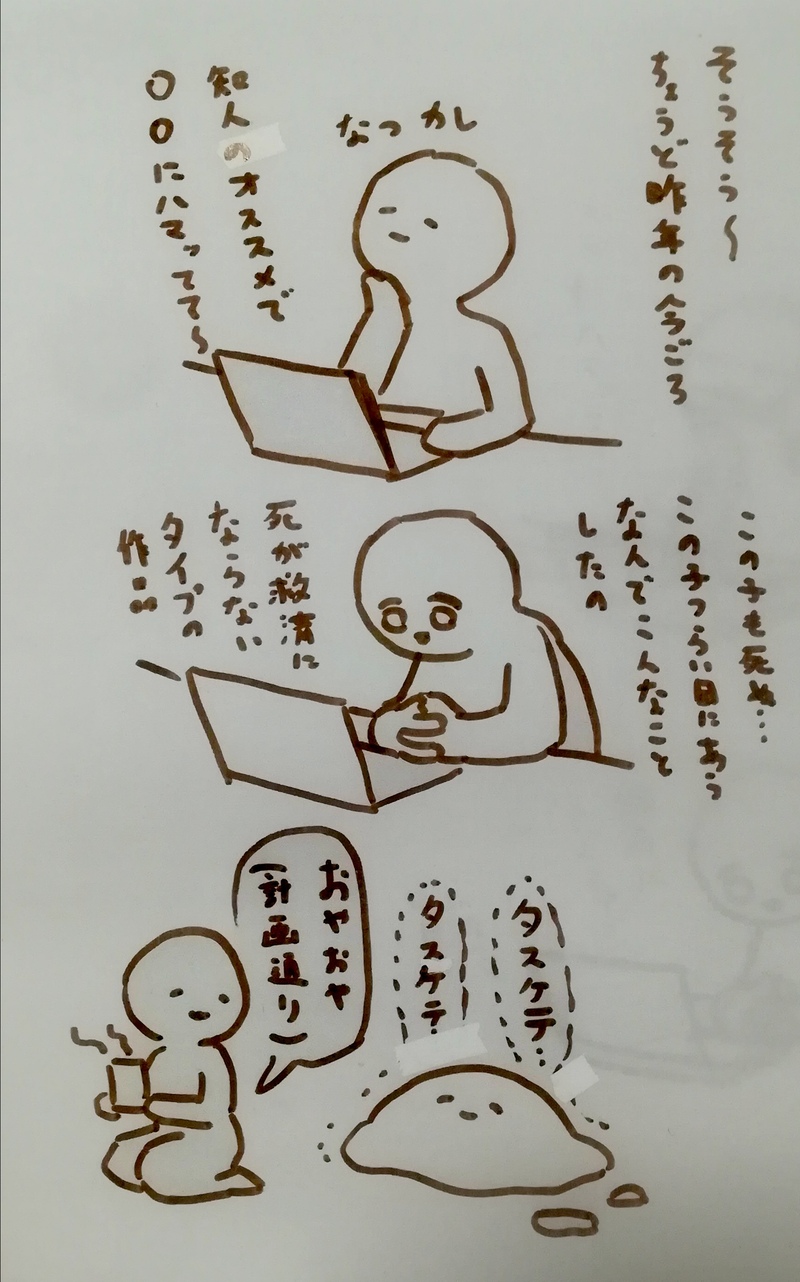 そうそう〜
ちょうど昨年の今ごろ
なつかし
知人のオススメで
〇〇にハマってて~
この子も死ぬ…
この子つらい目にあう
なんでこんなこと
したの
死が救済に
ならない
タイプの
作品
タスケテ…
タスケテ
おやおや
(計画通り)